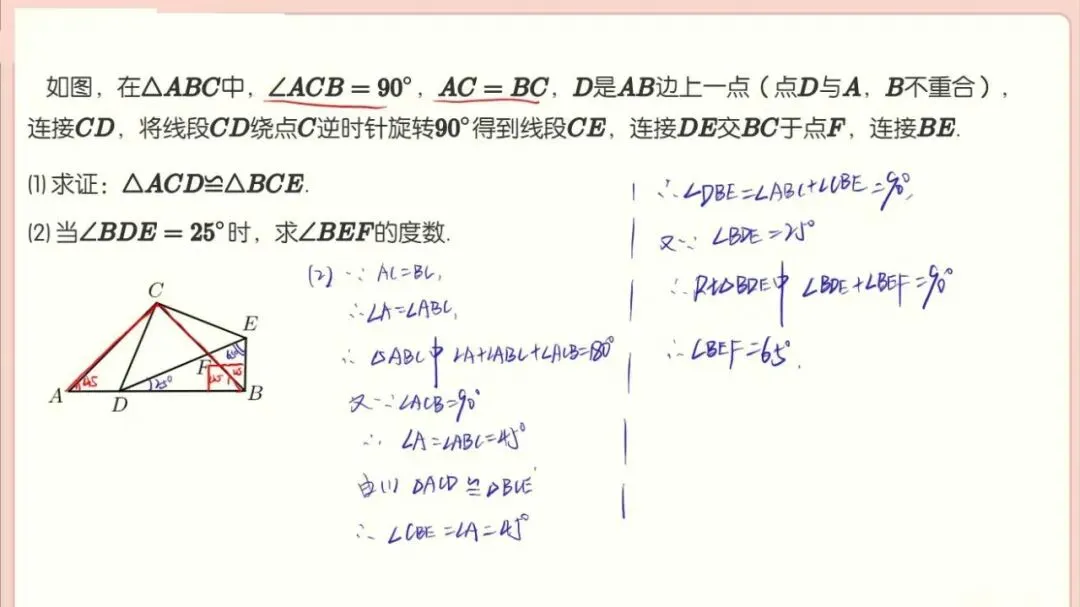 如图，在△ABC中，∠ACB=90°，AC=BC，D是AB边上一点（点D与A，B不重合），
连接CD，将线段CD绕点C逆时针旋转90°得到线段CE，连接DE交BC于点F，连接BE.
(1)求证：△ACD≌△BCE.
(2)当∠BDE=25°时，求∠BEF的度数.
C
E
F
A
D
B
45
25°
65°
45
45
(2) ∵ AC=BC,
∴∠A=∠ABC,
∴ △ABC中 ∠A+∠ABC+∠ACB=180°
又∵∠ACB=90°
∴ ∠A=∠ABC=45°
由(1) △ACD≌△BCE
∴ ∠CBE=∠A=45°
∴∠DBE=∠ABC+∠CBE=90°,
又∵ ∠BDE=25°
∴ Rt△BDE中 ∠BDE+∠BEF=90°
∴∠BEF=65°.